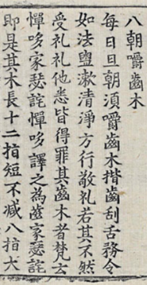 八朝嚼齒木
每日旦朝須嚼齒木揩齒刮舌務令
如法盥漱清淨方行敬礼若其不然
受礼礼他悉皆得罪其齒木者梵云
憚哆家瑟詑憚哆譯之為齒家瑟詑
即是其木長十二指短不減八指大